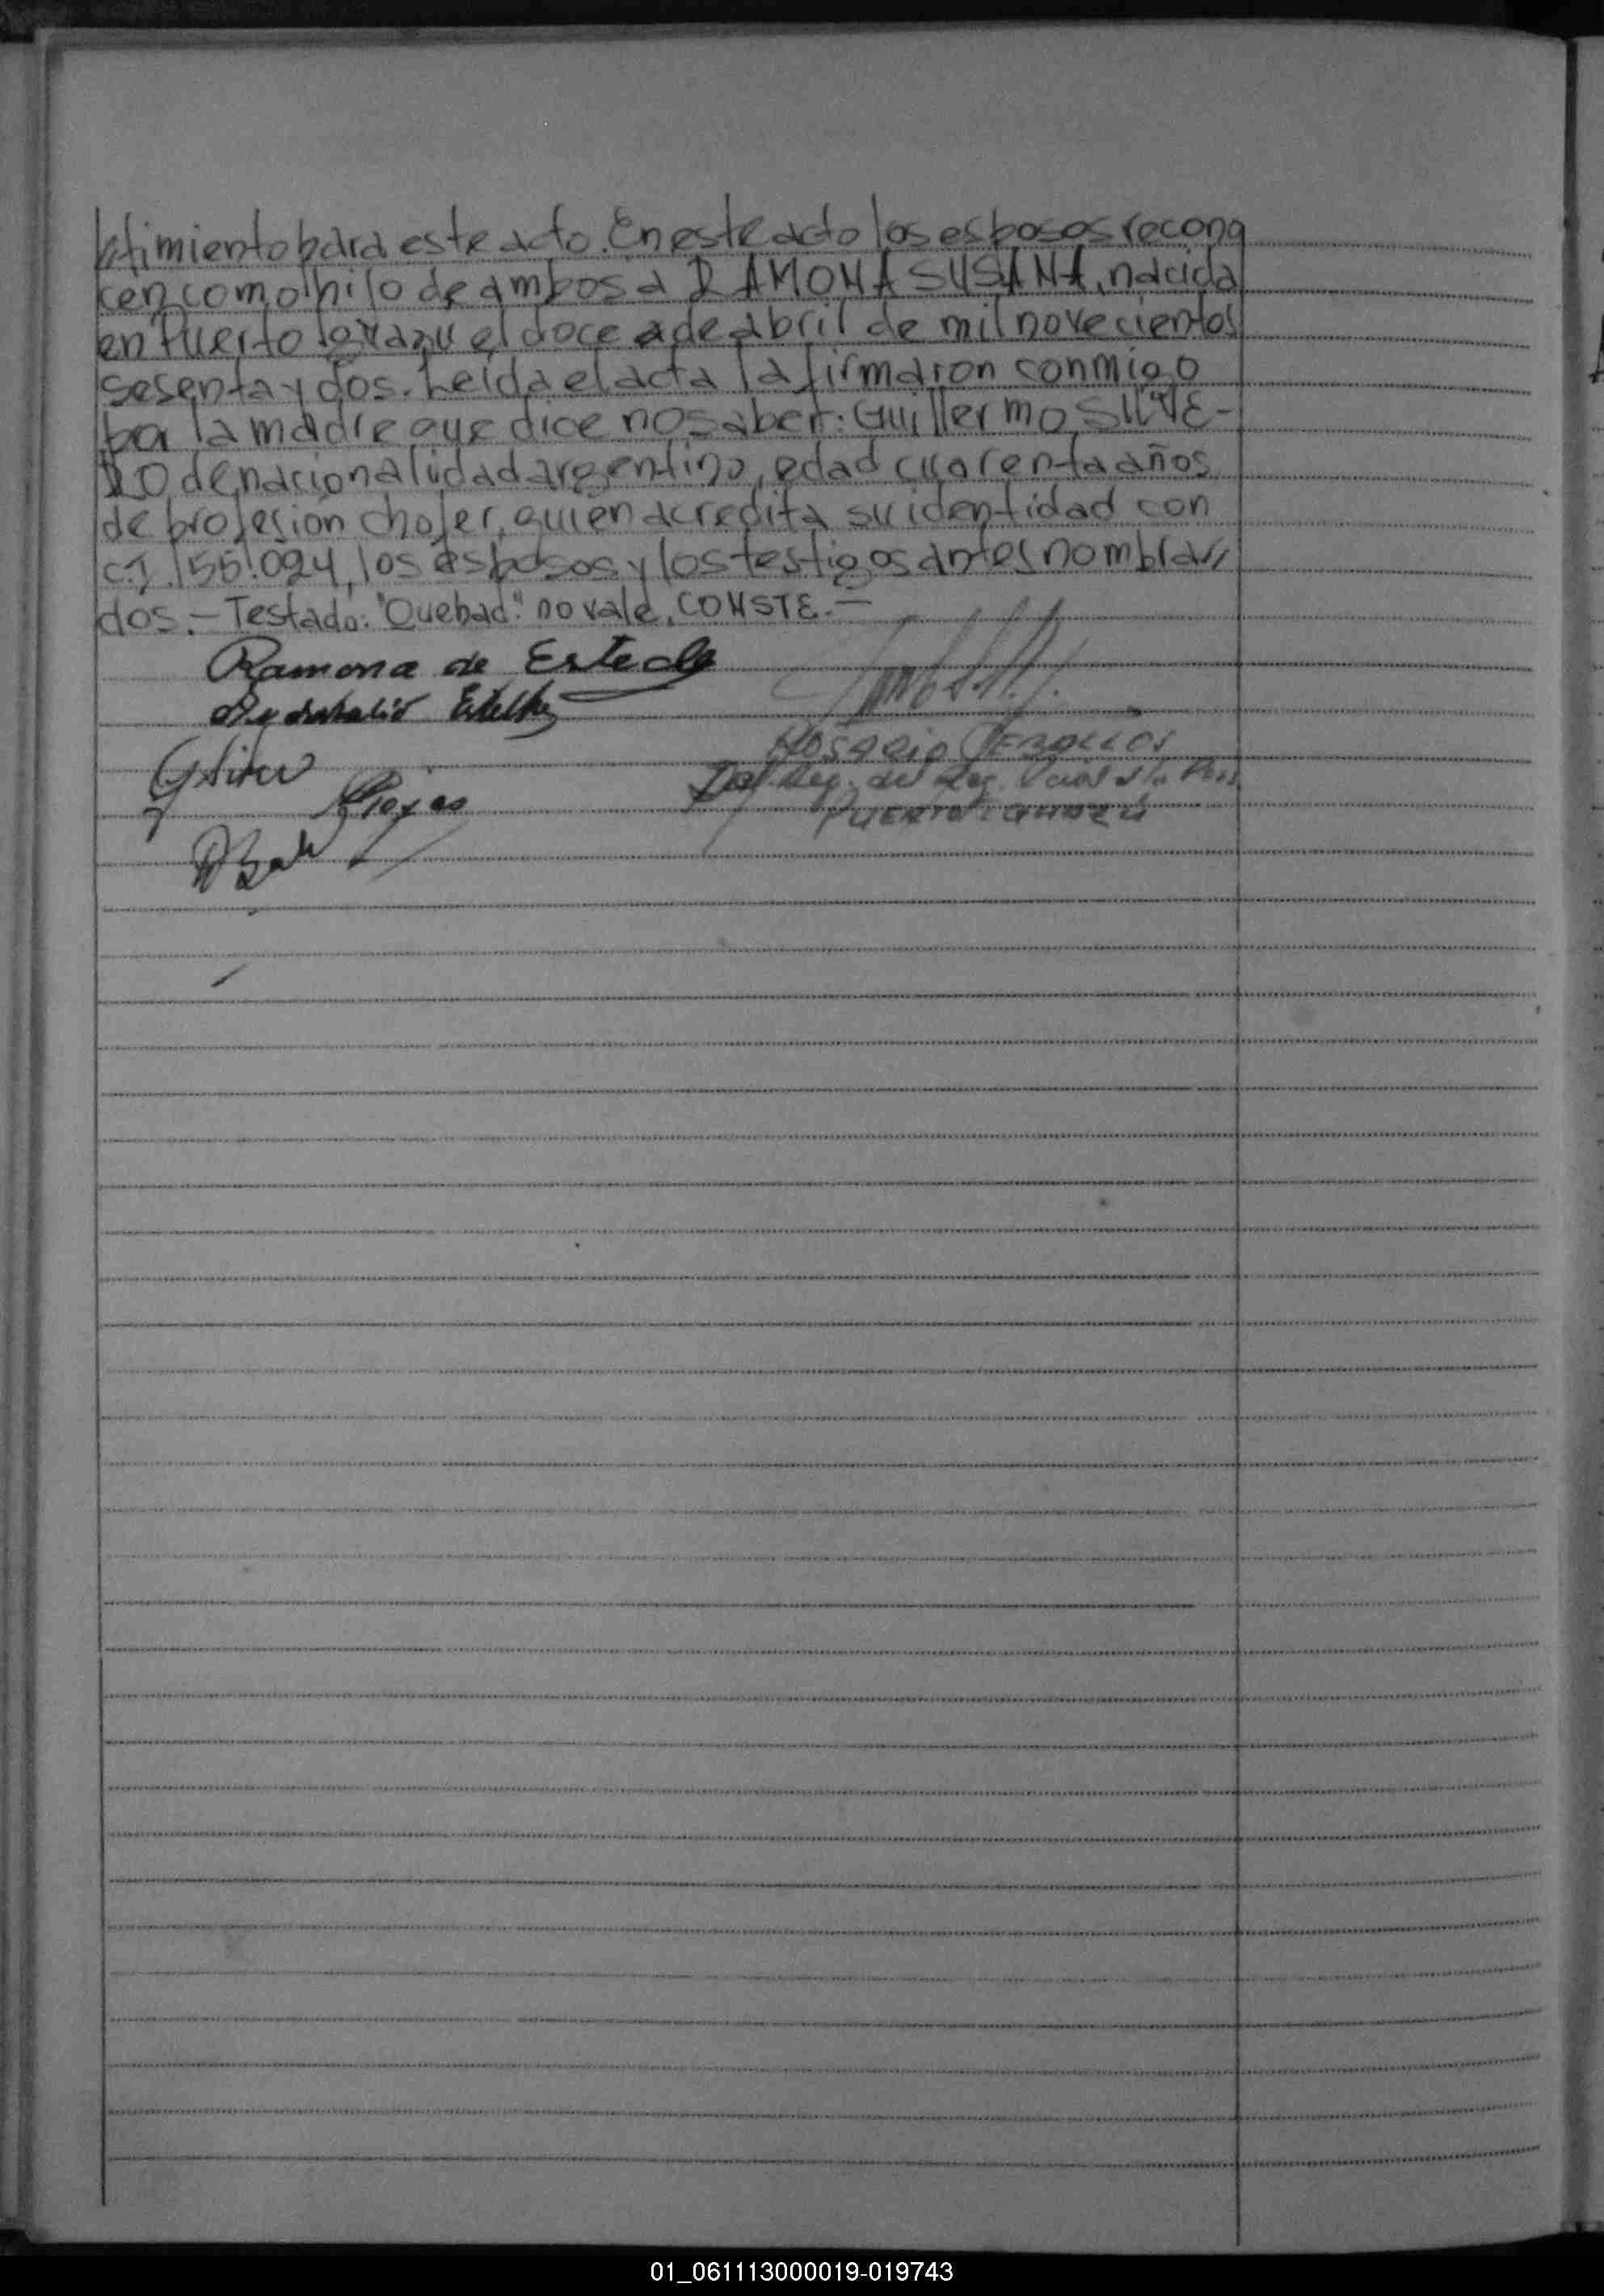 timiento para este acto. En este acto los esposos recono
cen como hijo de ambos a RAMONA SUSANA, nacida
en Puerto Iguazu el doce de abril de mil novecientos
sesenta y dos. Leida el acta la firmaron conmigo
por la madre que dice no saber: Guillermo SILVE-
RO de nacionalidad argentino, edad cuarenta años
de profesion chofer, quien acredita su identidad con
C.I. 155.024, los esposos y los testigos antes nombra//
dos.- Testado: "Quebad" no vale. CONSTE.-
Ramona de
Rojas
ROSARIO ZEBALLOS
PUERTO IGUAZÚ
01_061113000019-019743